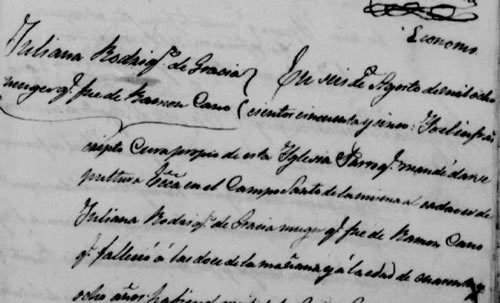 Economo
Juliana Rodrigz de Gracia
muger q. fue de Ramon Cano
En seis de Agosto de mil ocho
cientos cincuenta y cinco. Yo el infra
escripto Cura propio de esta Yglesia Parroql mandé dar se
pultura Ecca en el Campo Santo de la misma al cadaver de
Juliana Rodrigz de Gracia muger q. fue de Ramon Cano
q. falleció á las doce de la mañana y á la edad de cuarenta y
ocho años